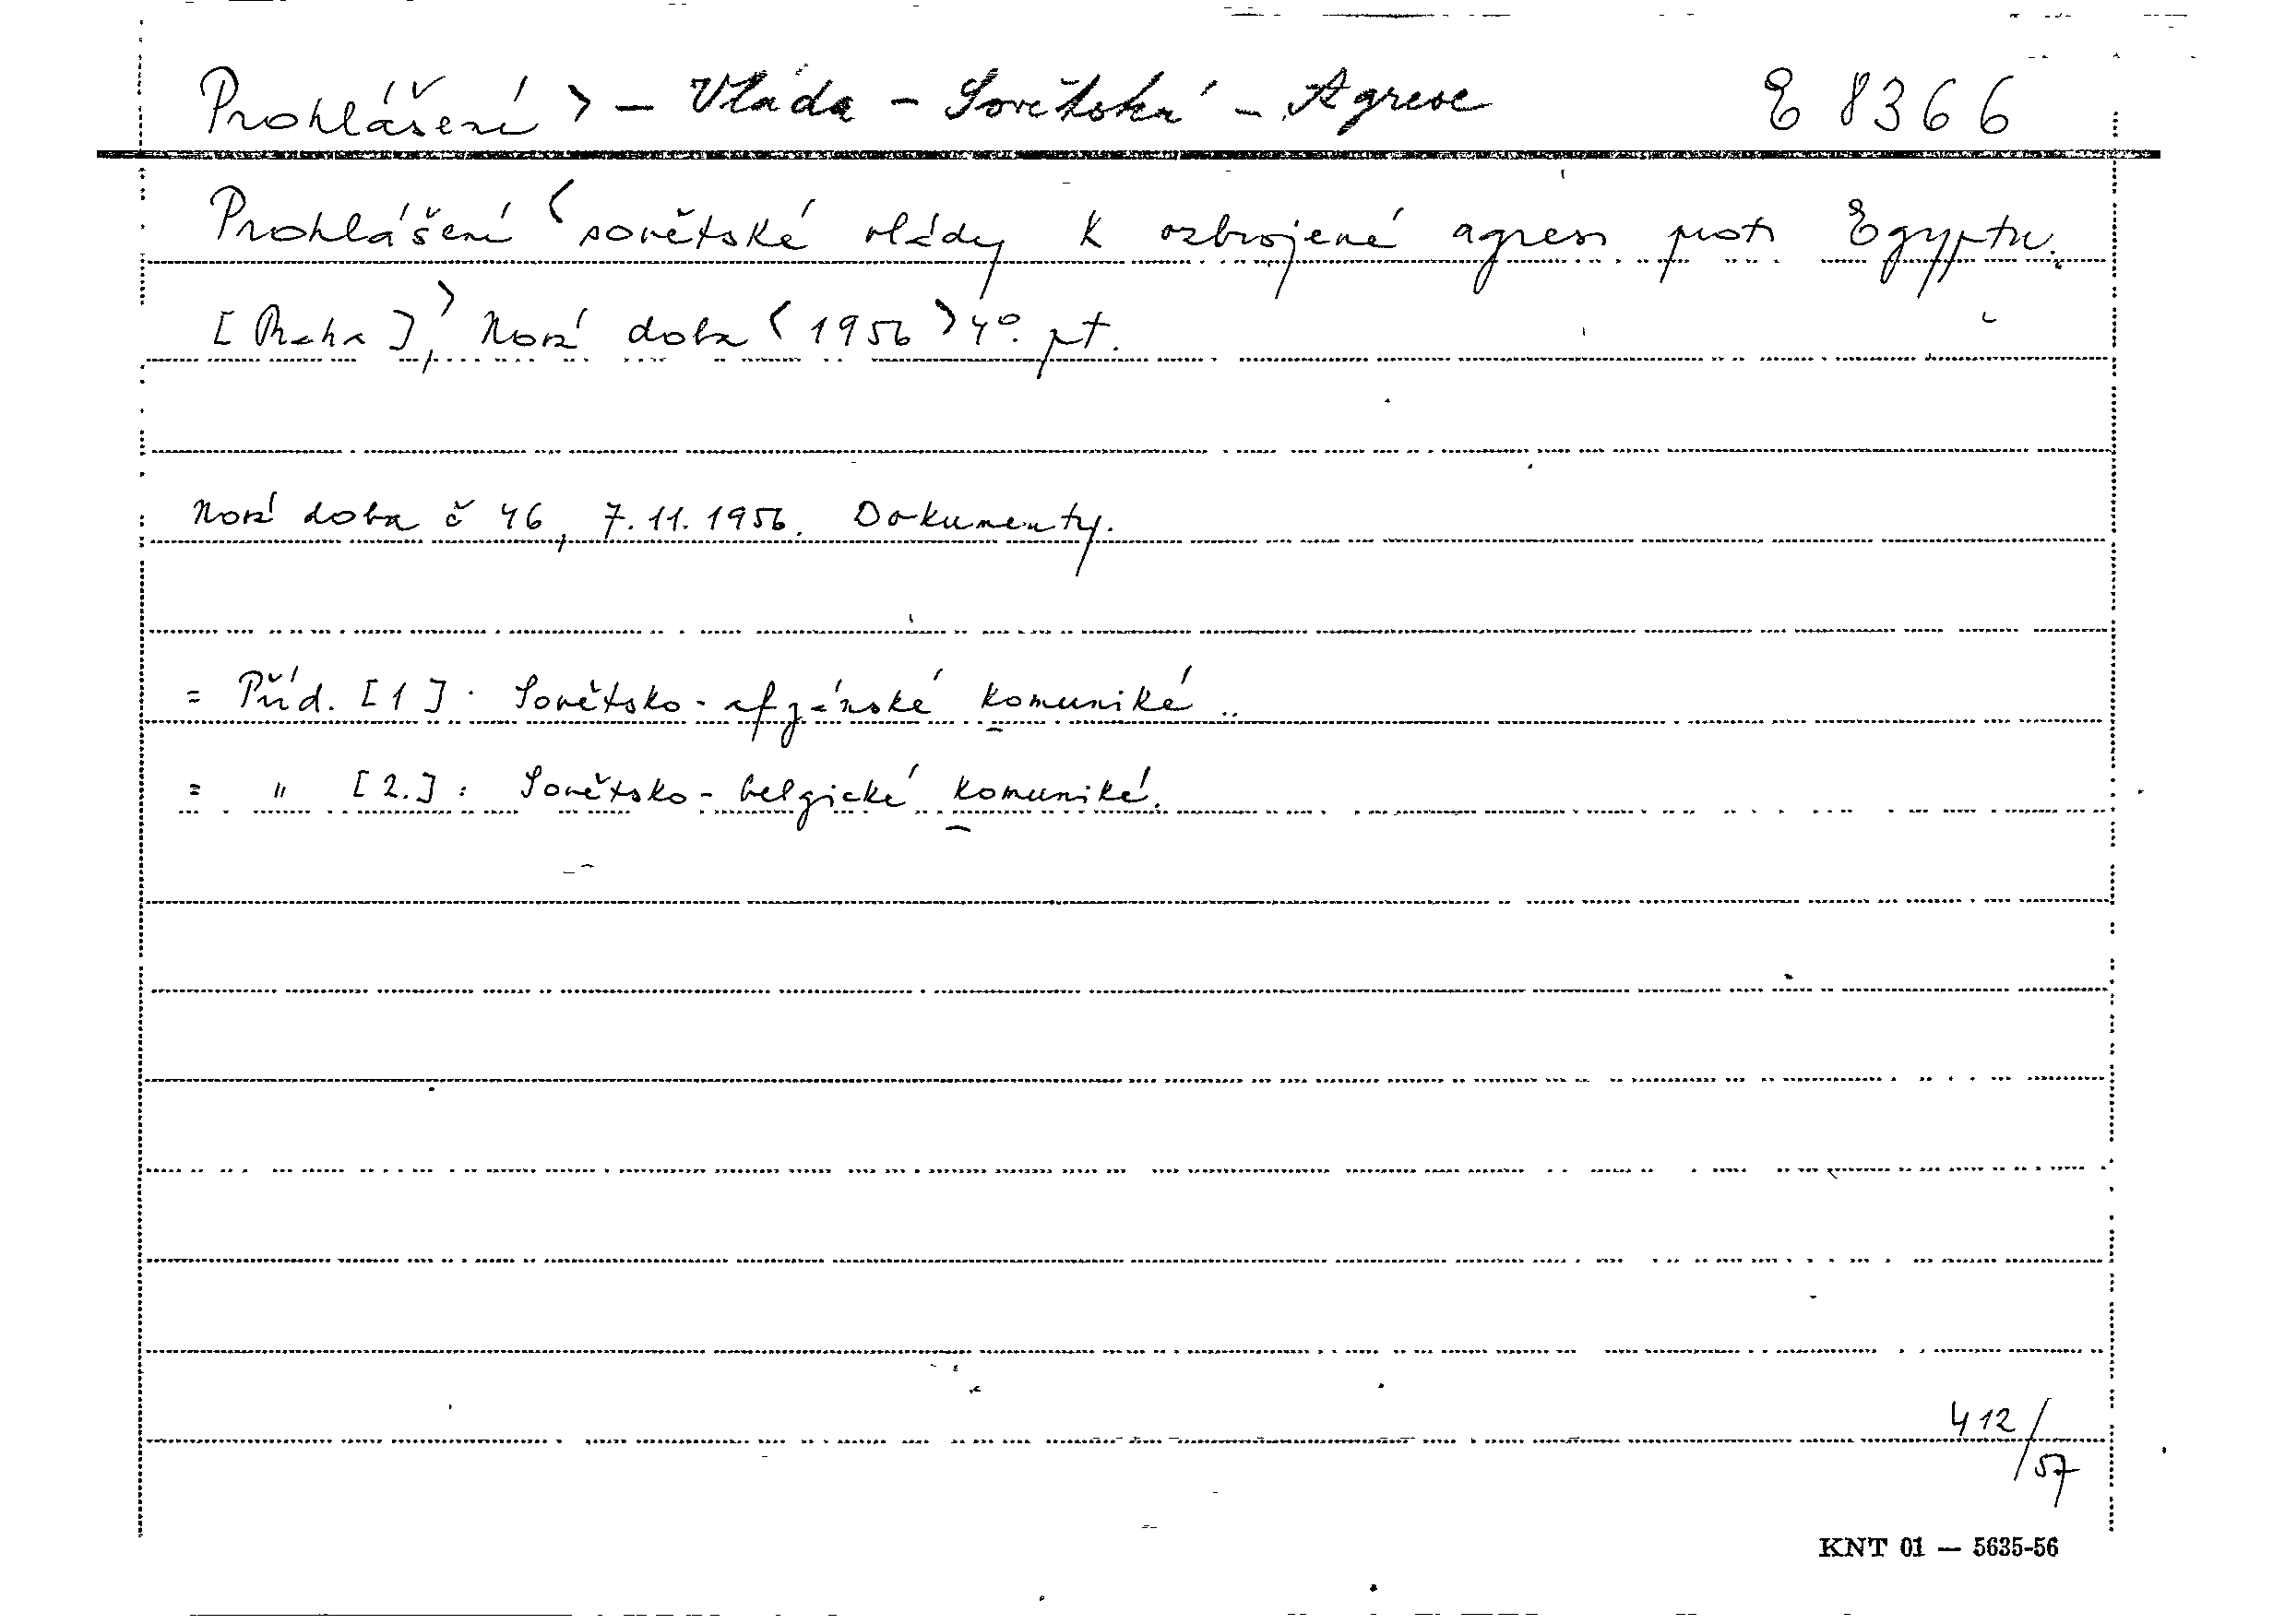 Prohlášení > – Vláda – Sovětská – Agrese E 8366
Prohlášení < sovětské vlády k ozbrojené agresi proti Egyptu.
[Praha], > Nová doba < 1956 > 4°. pt.
Nová doba č 46, 7.11.1956. Dokumenty.
= Příd. [1]. Sovětsko-afgánské komuniké..
= " [2.]: Sovětsko-belgické komuniké.
412/57
KNT 01 — 5635-56